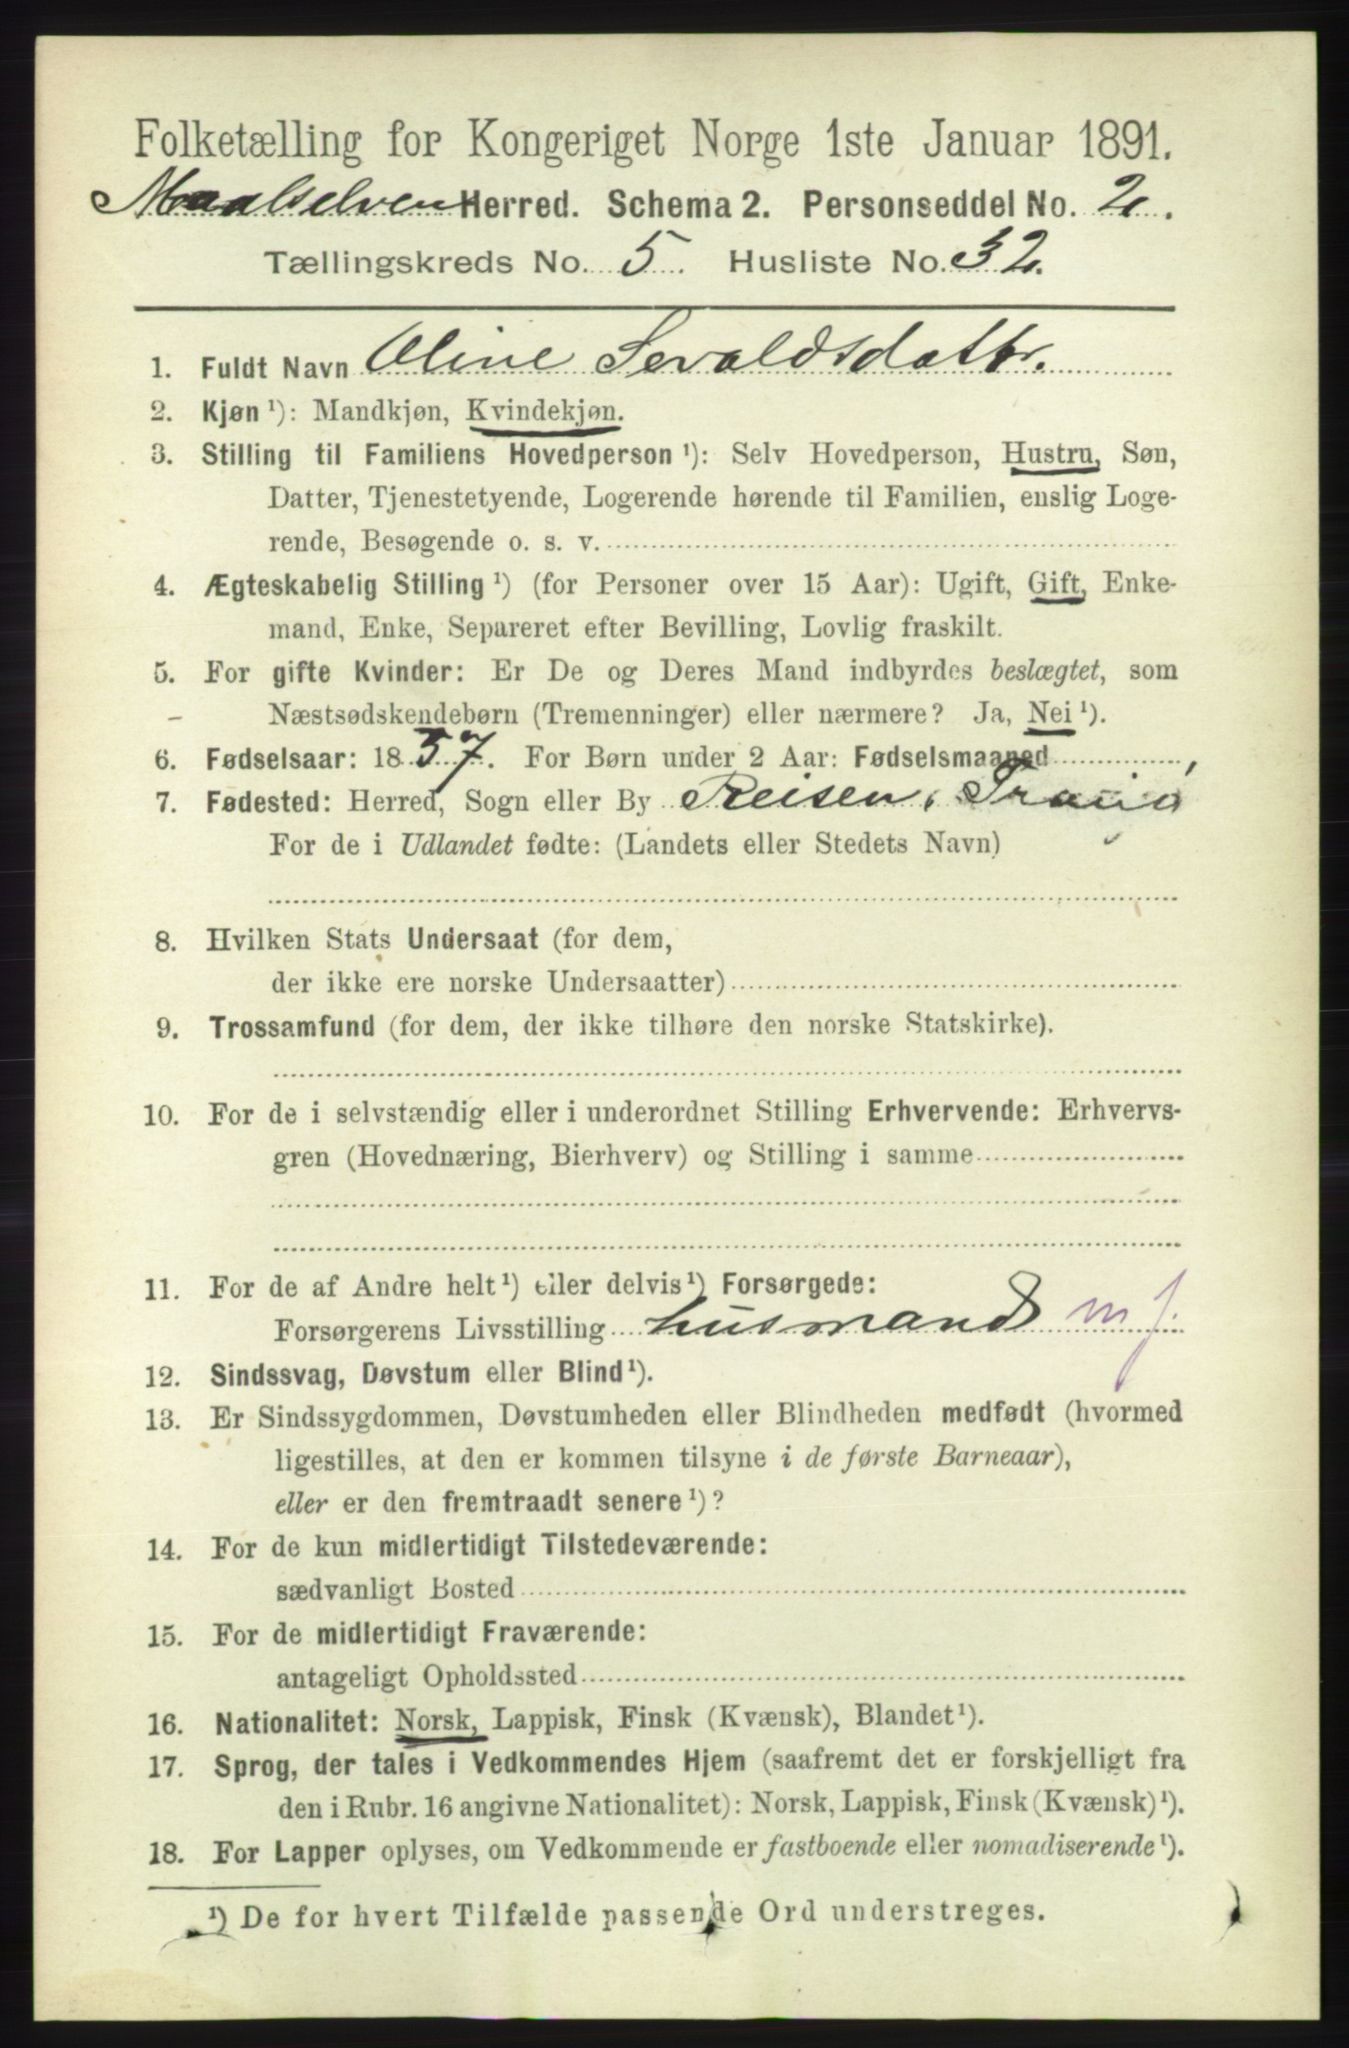 Folketælling for Kongeriget Norge 1ste Januar 1891.
Maalselven Herred. Schema 2. Personseddel No. 2.
Tællingskreds No. 5. Husliste No. 32.
1. Fuldt Navn Oline Sevaldsdattr.
2. Kjøn ¹): Mandkjøn, Kvindekjøn.
3. Stilling til Familiens Hovedperson ¹): Selv Hovedperson, Hustru, Søn,
Datter, Tjenestetyende, Logerende hørende til Familien, enslig Loge-
rende, Besøgende o. s. v.
4. Ægteskabelig Stilling ¹) (for Personer over 15 Aar): Ugift, Gift, Enke-
mand, Enke, Separeret efter Bevilling, Lovlig fraskilt.
5. For gifte Kvinder: Er De og Deres Mand indbyrdes beslægtet, som
Næstsødskendebørn (Tremenninger) eller nærmere? Ja, Nei ¹).
6. Fødselsaar: 1857. For Børn under 2 Aar: Fødselsmaaned
7. Fødested: Herred, Sogn eller By Reisen, Tranø
For de i Udlandet fødte: (Landets eller Stedets Navn)
8. Hvilken Stats Undersaat (for dem,
der ikke ere norske Undersaatter)
9. Trossamfund (for dem, der ikke tilhøre den norske Statskirke).
10. For de i selvstændig eller i underordnet Stilling Erhvervende: Erhvervs-
gren (Hovednæring, Bierhverv) og Stilling i samme
11. For de af Andre helt ¹) eller delvis ¹) Forsørgede:
Forsørgerens Livsstilling husmand m j.
12. Sindssvag, Døvstum eller Blind ¹).
13. Er Sindssygdommen, Døvstumheden eller Blindheden medfødt (hvormed
ligestilles, at den er kommen tilsyne i de første Barneaar),
eller er den fremtraadt senere ¹)?
14. For de kun midlertidigt Tilstedeværende:
sædvanligt Bosted
15. For de midlertidigt Fraværende:
antageligt Opholdssted
16. Nationalitet: Norsk, Lappisk, Finsk (Kvænsk), Blandet ¹).
17. Sprog, der tales i Vedkommendes Hjem (saafremt det er forskjelligt fra
den i Rubr. 16 angivne Nationalitet): Norsk, Lappisk, Finsk (Kvænsk) ¹).
18. For Lapper oplyses, om Vedkommende er fastboende eller nomadiserende ¹).
¹) De for hvert Tilfælde passende Ord understreges.